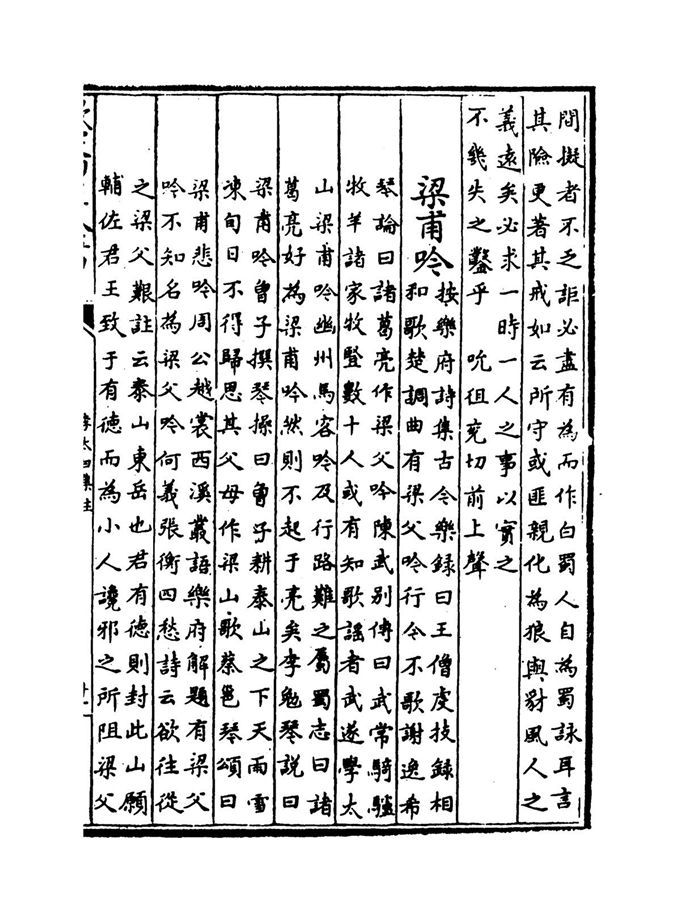 間擬者不乏詎必盡有為而作白蜀人自為蜀詠耳言
其險更著其戒如云所守或匪親化為狼與豺風人之
義遠矣必求一時一人之事以實之
不幾失之鑿乎　吮徂兖切前上聲
梁甫吟
按樂府詩集古今樂録曰王僧虔技録相
和歌楚調曲有梁父吟行今不歌謝逸希
琴論曰諸葛亮作梁父吟陳武别傳曰武常騎驢
牧羊諸家牧豎數十人或有知歌謡者武遂學太
山梁甫吟幽州馬客吟及行路難之屬蜀志曰諸
葛亮好為梁甫吟然則不起于亮矣李勉琴說曰
梁甫吟曾子撰琴操曰曾子耕泰山之下天雨雪
凍旬日不得歸思其父母作梁山歌蔡邕琴頌曰
梁甫悲吟周公越裳西溪叢語樂府解題有梁父
吟不知名為梁父吟何義張衡四愁詩云欲往從
之梁父艱註云泰山東岳也君有德則封此山願
輔佐君王致于有德而為小人讒邪之所阻梁父
李太白集注